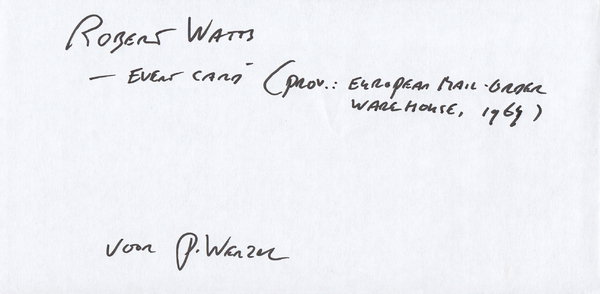 ROBERT WATTS
— EVENT CARD (PROV.: EUROPEAN MAIL-ORDER
WAREHOUSE, 1964)
VOOR P.